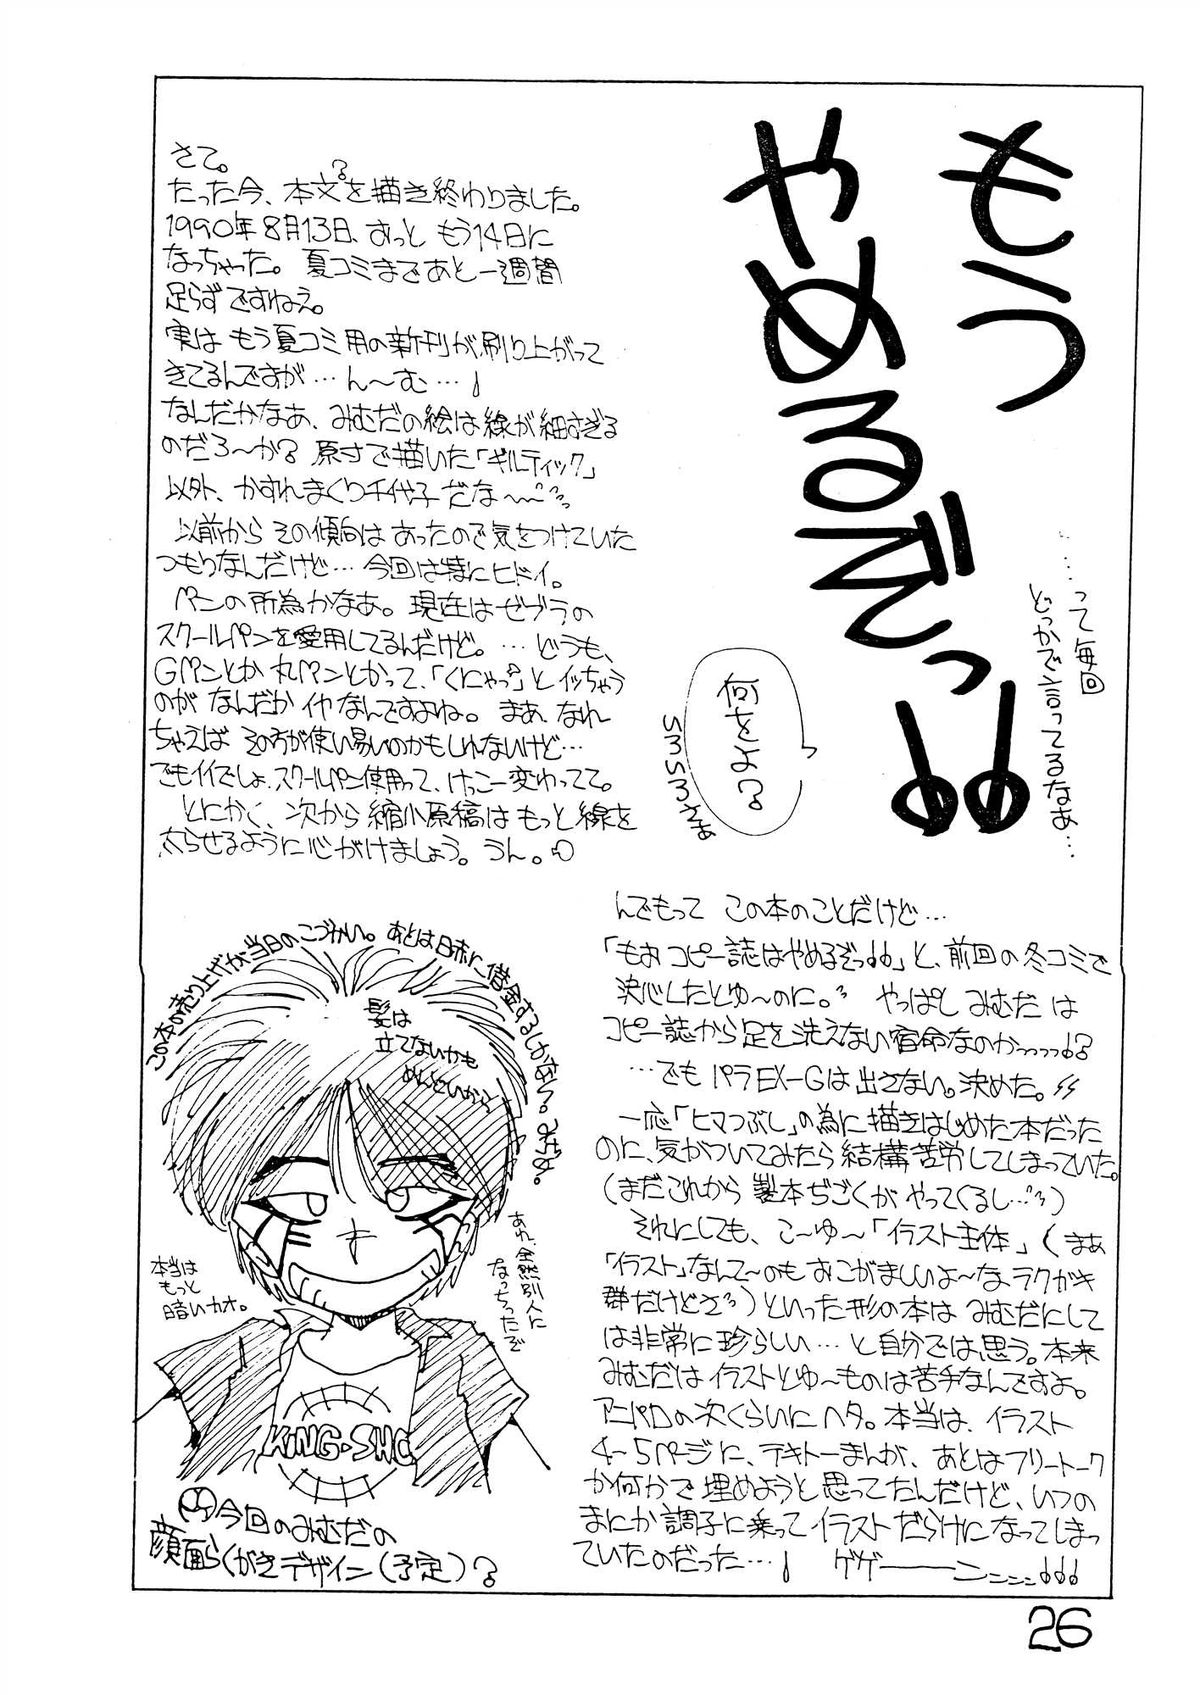 もう
やめるぞっ!!
……って毎回
どっかで言ってるなぁ…
何をよ?
さて。
たった今、本文?を描き終わりました。
1990年8月13日、おっと もう14日に
なっちゃった。夏コミまであと一週間
足らずですねえ。
実は もう夏コミ用の新刊が刷り上がって
きてるんですが…ん〜む…!
なんだかなあ、みむだの絵は線が細すぎる
のだろ〜か? 原寸で描いた「ギルティック」
以外、かすれまくり千代子だな〜
以前から その傾向は あったので気をつけていた
つもりなんだけど… 今回は特にヒドイ。
ペンの所為かなあ。現在はゼブラの
スクールペンを愛用してるんだけど。…どうも、
Gペンとか丸ペンとかって、「くにゃっ」とイッちゃう
のが なんだか イヤなんですよね。まあ、なれ
ちゃえば その方が使い易いのかもしれないけど…
でもイイでしょ、スクールペン使用って、けっこー変わってて。
とにかく、次から縮小原稿は もっと線を
太らせるように心がけましょう。うん。
んでもって この本のことだけど…
「もお コピー誌はやめるぞっ!!」と、前回の冬コミで
決心したとゆ〜のに。 やっぱし みむだ は
コピー誌から足を洗えない宿命なのかっっっっ!?
…でも パラEX-Gは出さない。決めた。
一応「ヒマつぶし」の為に描きはじめた本だった
のに、気がついてみたら結構苦労してしまっていた。
(まだこれから 製本ぢごくが やってくるし…)
それにしても、こ〜ゆ〜「イラスト主体」(まぁ
「イラスト」なんて〜のも おこがましいよ〜な ラクガキ
群だけどさ)といった形の本は みむだにして
は非常に珍らしい…と自分では思う。本来
みむだは イラストとゆ〜ものは苦手なんですよ。
アニパロの次くらいにヘタ。本当は、イラスト
4〜5ページに、テキトーまんが、あとはフリートーク
か何かで埋めようと思ってたんだけど、いつの
まにか調子に乗ってイラストだらけになってしまっ
ていたのだった…! ゲゲーーーンンンン!!!
この本の売り上げが当日のこづかい。あとは日赤に借金するしかない。みじめ。
髪は
立てないかも
めんどいから
あれ、全然別人に
なっちったで
本当は
もっと
暗いカオ。
KING・SHC
今回のみむだの
顔面らくがきデザイン(予定)?
26